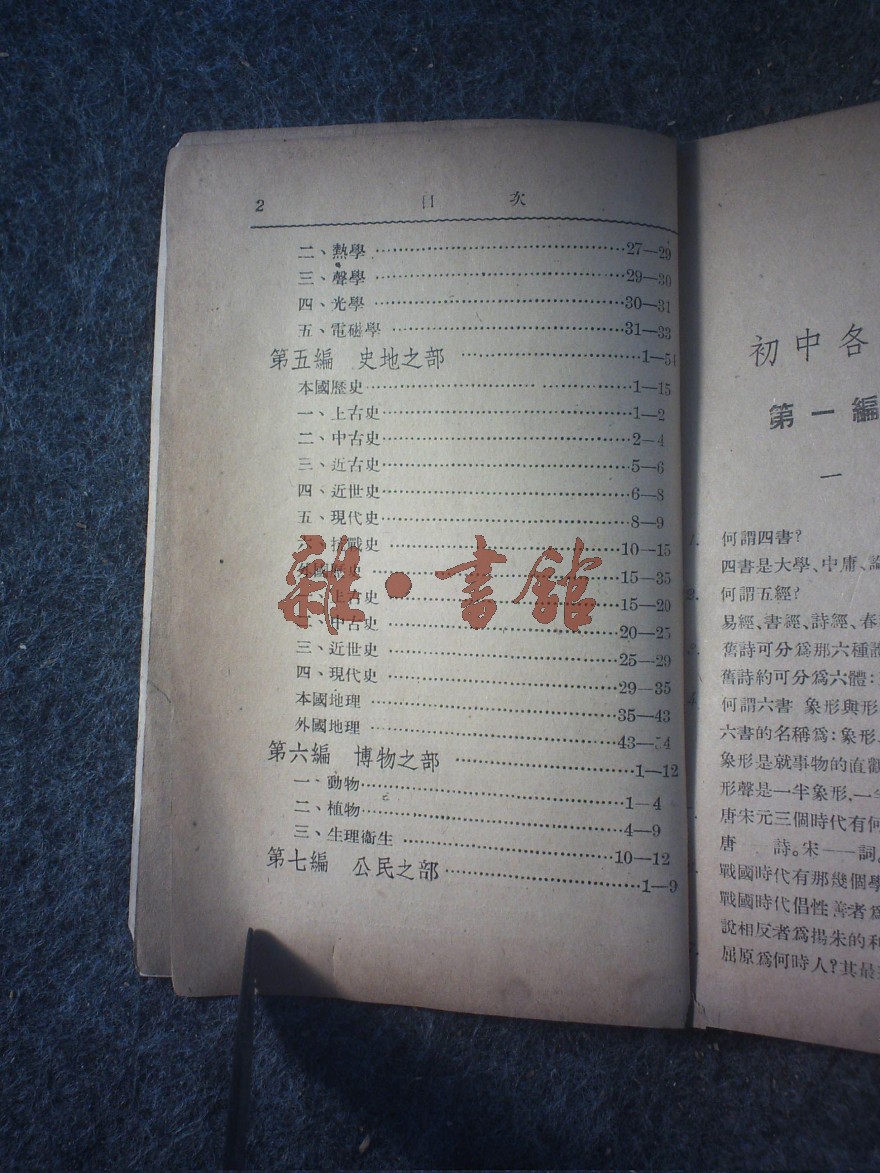 2 目次
二、熱學 27—29
三、聲學 29—30
四、光學 30—31
五、電磁學 31—33
第五編 史地之部 1—54
本國歷史 1—15
一、上古史 1—2
二、中古史 2—4
三、近古史 5—6
四、近世史 6—8
五、現代史 8—9
六、抗戰史 10—15
外國歷史 15—35
一、上古史 15—20
二、中古史 20—25
三、近世史 25—29
四、現代史 29—35
本國地理 35—43
外國地理 43—54
第六編 博物之部 1—12
一、動物 1—4
二、植物 4—9
三、生理衛生 10—12
第七編 公民之部 1—9
雜·書館
初中各
第一編
一
何謂四書?
四書是大學、中庸、論
2. 何謂五經?
易經、書經、詩經、春
舊詩可分爲那六種
舊詩約可分爲六體:
何謂六書 象形與形
六書的名稱爲:象形、
象形是就事物的直觀
形聲是一半象形,一
唐宋元三個時代有何
唐 詩。宋——詞。
戰國時代有那幾個學
戰國時代倡性善者爲
說相反者爲揚朱的利
屈原爲何時人?其最